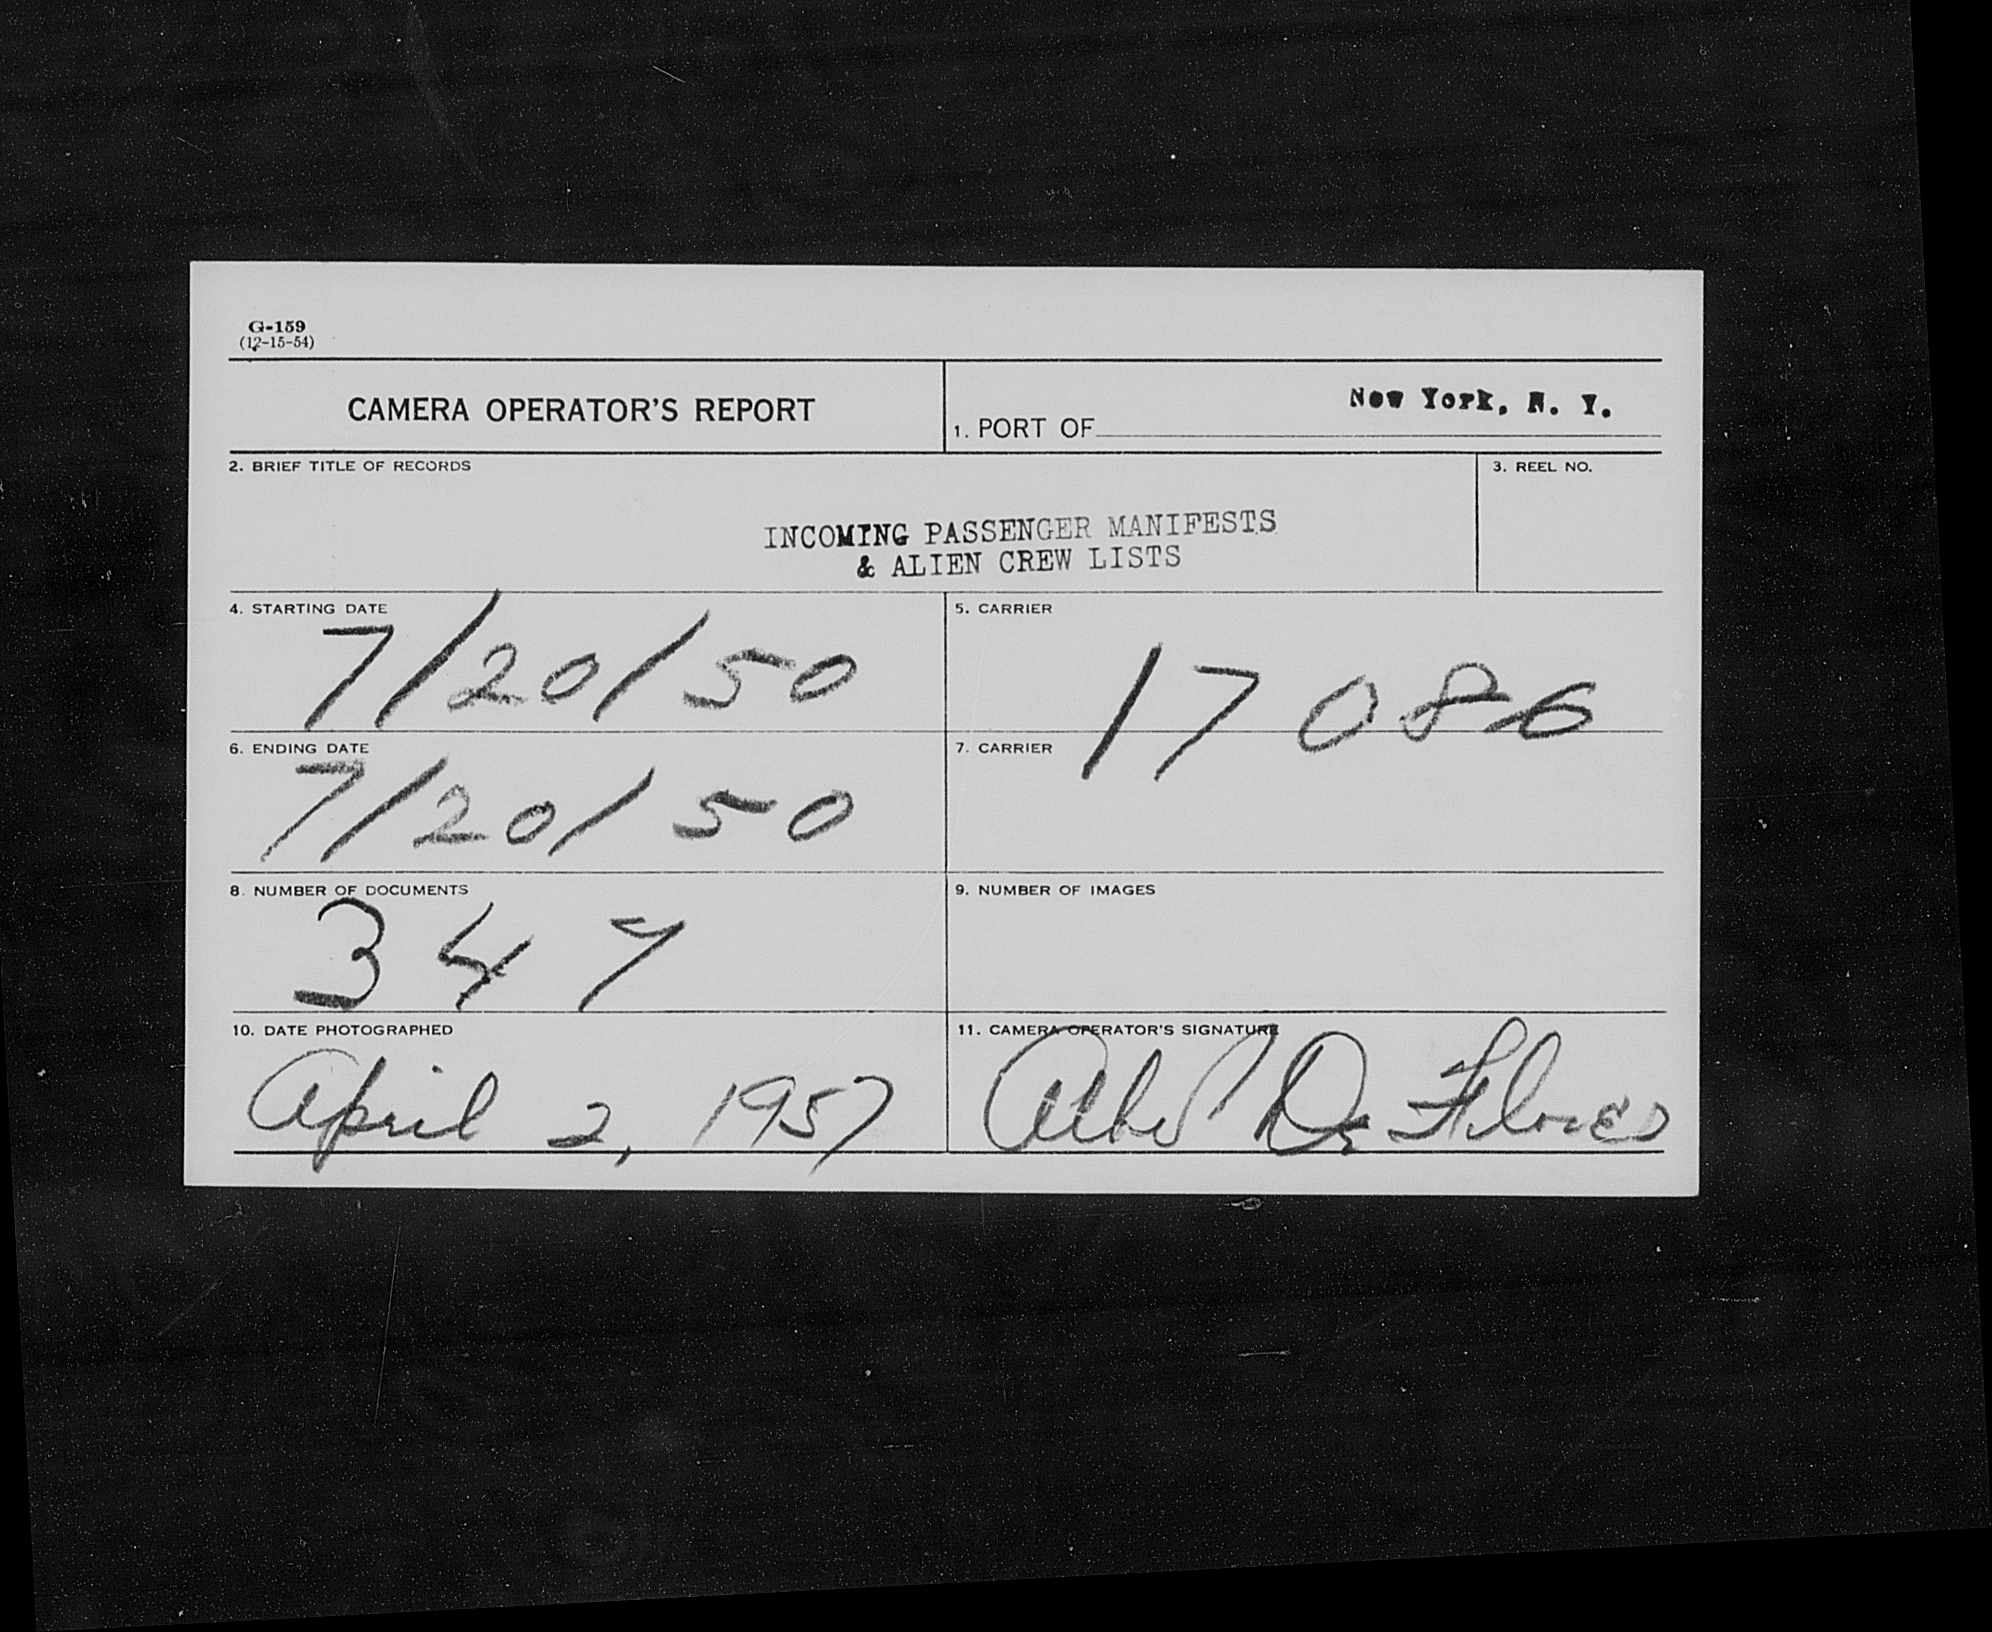 G-159
(12-15-54)
CAMERA OPERATOR'S REPORT
1. PORT OF New York, N. Y.
2. BRIEF TITLE OF RECORDS
3. REEL NO.
INCOMING PASSENGER MANIFESTS
& ALIEN CREW LISTS
4. STARTING DATE
7/20/50
5. CARRIER
17086
6. ENDING DATE
7/20/50
7. CARRIER
8. NUMBER OF DOCUMENTS
347
9. NUMBER OF IMAGES
10. DATE PHOTOGRAPHED
April 2, 1957
11. CAMERA OPERATOR'S SIGNATURE